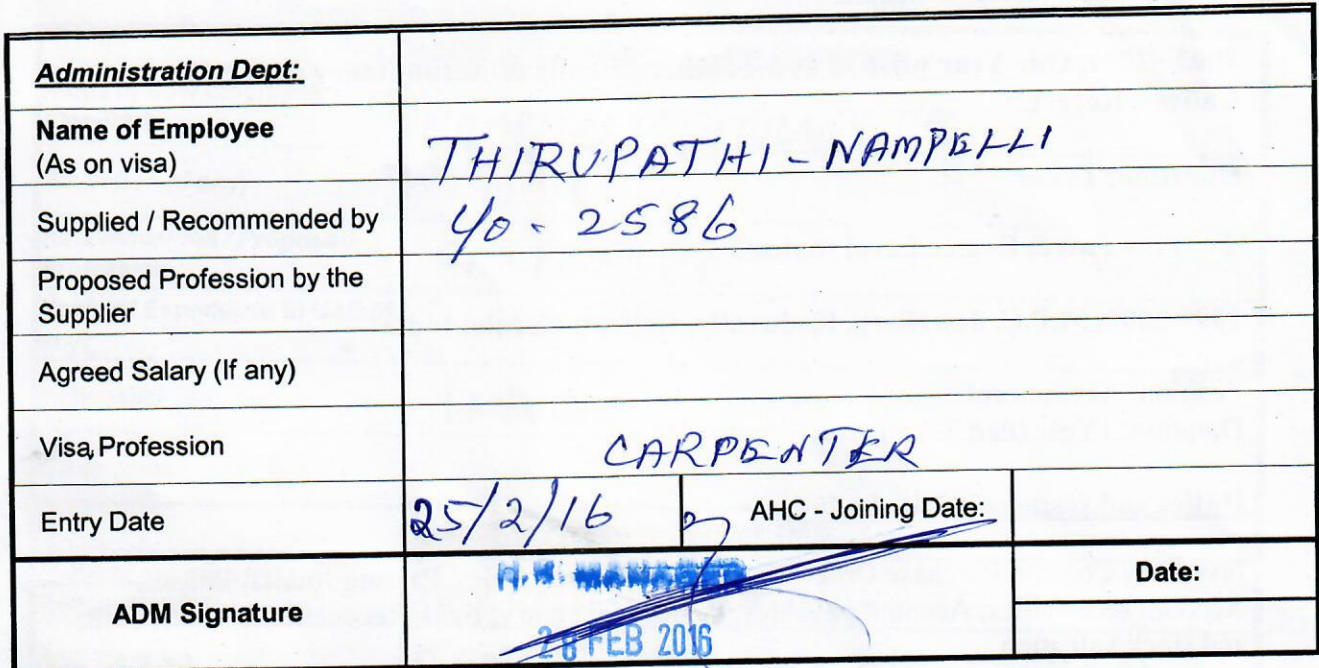 Administration Dept:
Name of Employee
(As on visa)
THIRUPATHI - NAMPELLI
Supplied / Recommended by
40 - 2586
Proposed Profession by the
Supplier
Agreed Salary (If any)
Visa, Profession
CARPENTER
Entry Date
25/2/16
AHC - Joining Date:
ADM Signature
MANAGER
28 FEB 2016
Date: